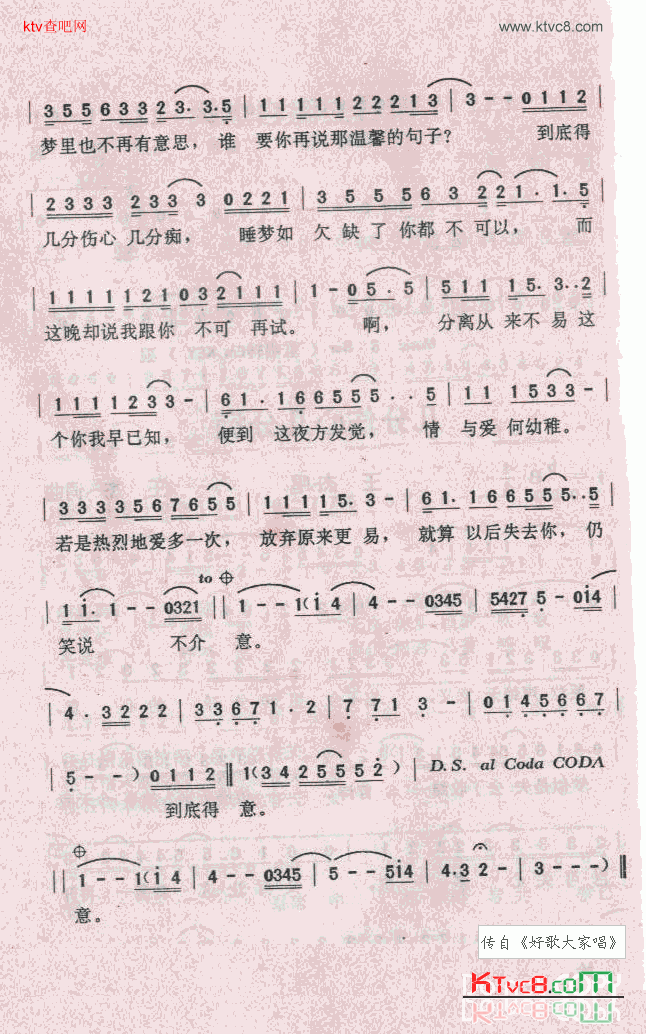 ktv查吧网 www.ktvc8.com
| 3 5 5 6 3 3 2 3. 3. 5 | 1 1 1 1 1 2 2 2 1 3 | 3 - - 0 1 1 2 |
梦里也不再有意思，谁 要你再说那温馨的句子？ 到底得
| 2 3 3 3 2 3 3 3 0 2 2 1 | 3 5 5 5 6 3 2 2 1. 1. 5 |
几分伤心 几分痴， 睡梦如 欠缺了你都不可以， 而
| 1 1 1 1 1 2 1 0 3 2 1 1 1 | 1 - 0 5. 5 | 5 1 1 1 5. 3.. 2 |
这晚却说我跟你 不可 再试。 啊， 分离从 来不易这
| 1 1 1 1 2 3 3 - | 6 1. 1 6 6 5 5 5.. 5 | 1 1 1 5 3 3 - |
个你我早已知， 便到 这夜方发觉， 情 与爱何幼稚。
| 3 3 3 3 5 6 7 6 5 5 | 1 1 1 1 5. 3 - | 6 1. 1 6 6 5 5 5.. 5 |
若是热烈地爱多一次， 放弃原来更易， 就算 以后失去你，仍
to
| 1 1. 1 - - 0321 || 1 - - 1(1 4 | 4 - - 0345 | 5427 5 - 014
笑说 不介 意。
| 4. 3 2 2 2 | 3 3 6 7 1. 2 | 7 7 1 3 - | 0 1 4 5 6 6 7 |
| 5 - - ) 0 1 1 2 || 1(3 4 2 5 5 5 2 ) | D.S. al Coda CODA
到底得 意。
|| 1 - - 1(1 4 | 4 - - 0345 | 5 - - 514 | 4.3 2 - | 3 - - - ) ||
意。
传自《好歌大家唱》
KTvc8.com